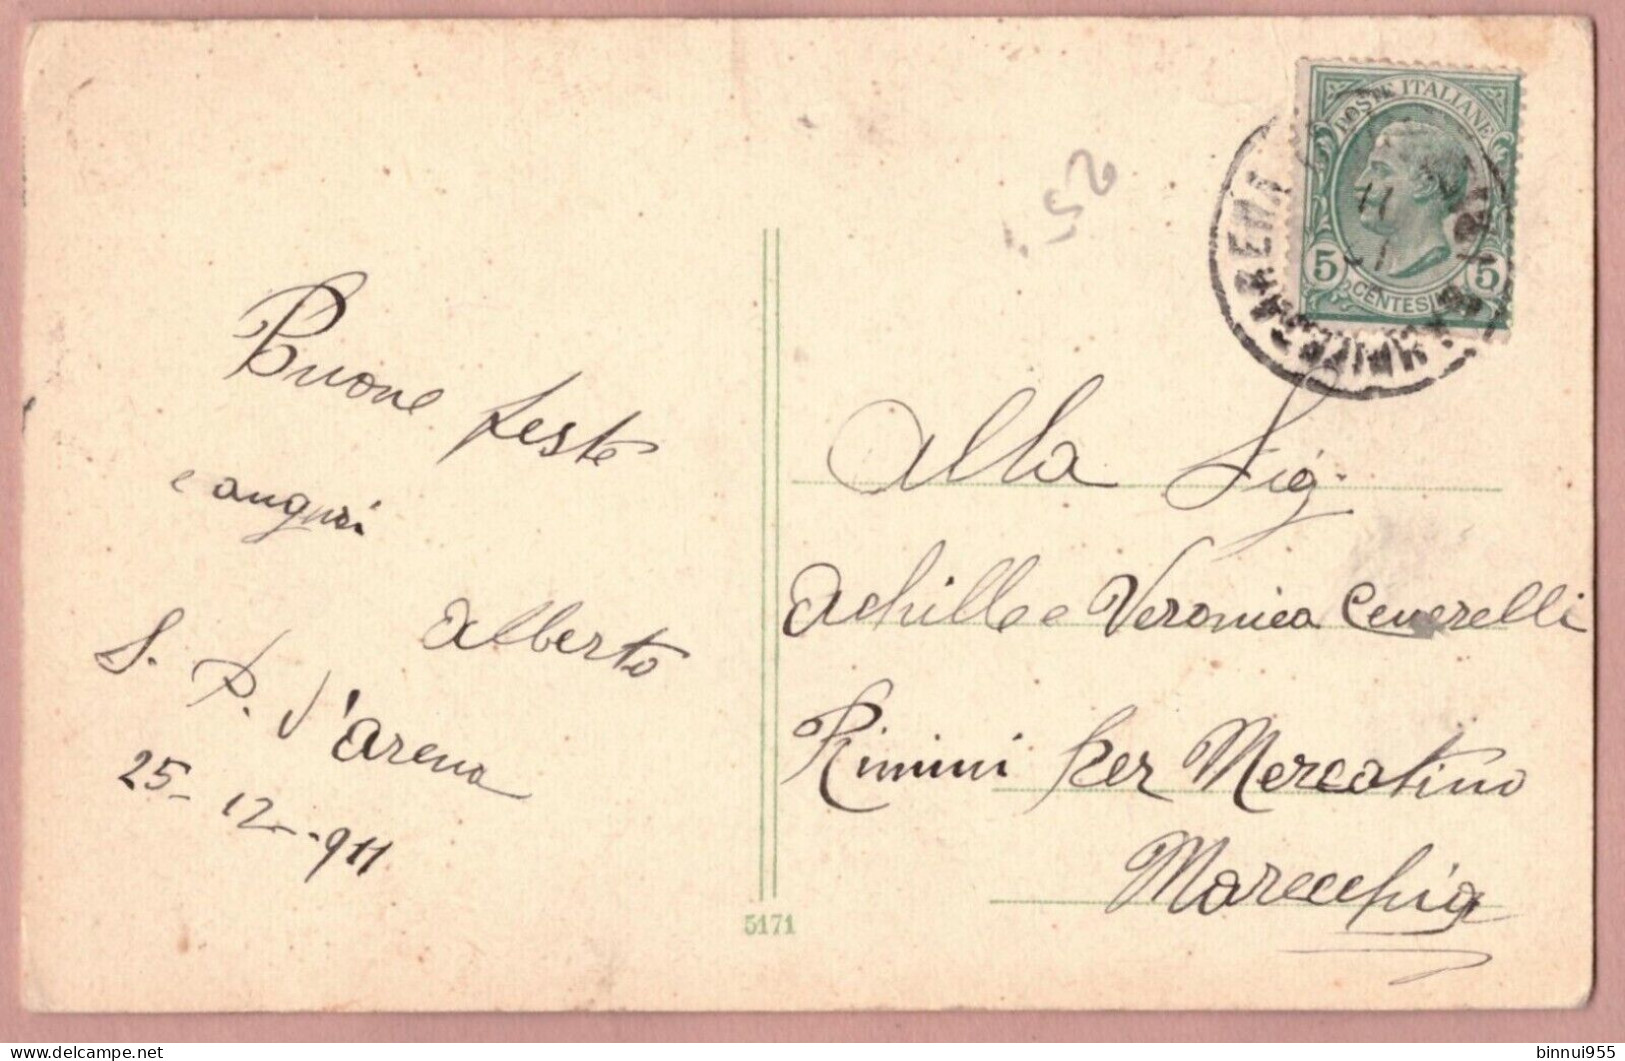 Buone feste
e auguri
Alberto
S. P. d'Arena
25-12-911
5171
POSTE ITALIANE
5 5
CENTESIMI
Alla Sig.
Achille e Veronica Ceverelli
Rimini per Mercatino
Marecchia
delcampe.net
binnui955